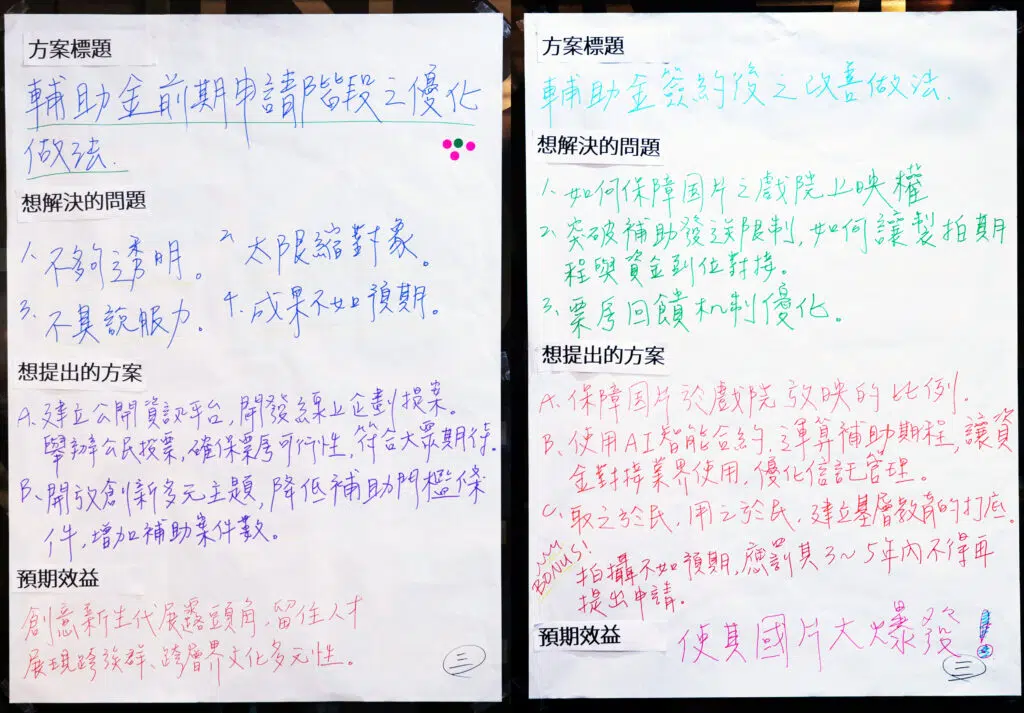 方案標題
輔助金前期申請階段之優化
做法.
想解決的問題
1. 不夠透明。 2. 太限縮對象。
3. 不具說服力. 4. 成果不如預期。
想提出的方案
A. 建立公開資訊平台, 開發線上企劃提案。
舉辦公民投票, 確保票房可行性, 符合大眾期待。
B. 開放創新多元主題, 降低補助門檻條
件, 增加補助案件數。
預期效益
創意新生代展露頭角, 留住人才
展現跨族群、跨層界文化多元性。
三
方案標題
輔助金簽約後之改善做法.
想解決的問題
1. 如何保障国片之戲院上映權
2. 突破補助發送限制, 如何讓製拍期
程與資金到位對接。
3. 票房回饋机制優化。
想提出的方案
A. 保障国片於戲院放映的比例.
B. 使用AI智能合約, 運算補助期程, 讓資
金對接業界使用, 優化信託管理。
C. 取之於民, 用之於民, 建立基層教育的打底。
BONUS!
拍攝不如預期, 應罰其3~5年內不得再
提出申請。
預期效益
使其國片大爆發!
三